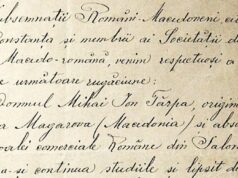 ubsemnații Români-Macedoneni, ci
Constanța și membrii ai Societății d
Macedo-română, venim respectuoși a
e următoare rugăciune:
Domnul Mihai Ion Țărpa, origin
a Magarova (Macedonia) și abso
oalei comerciale Române din Salon
a-și continua studiile și lipsit d